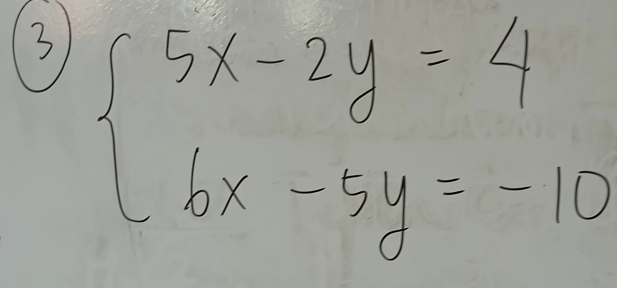 ③ 5x - 2y = 4
6x - 5y = -10